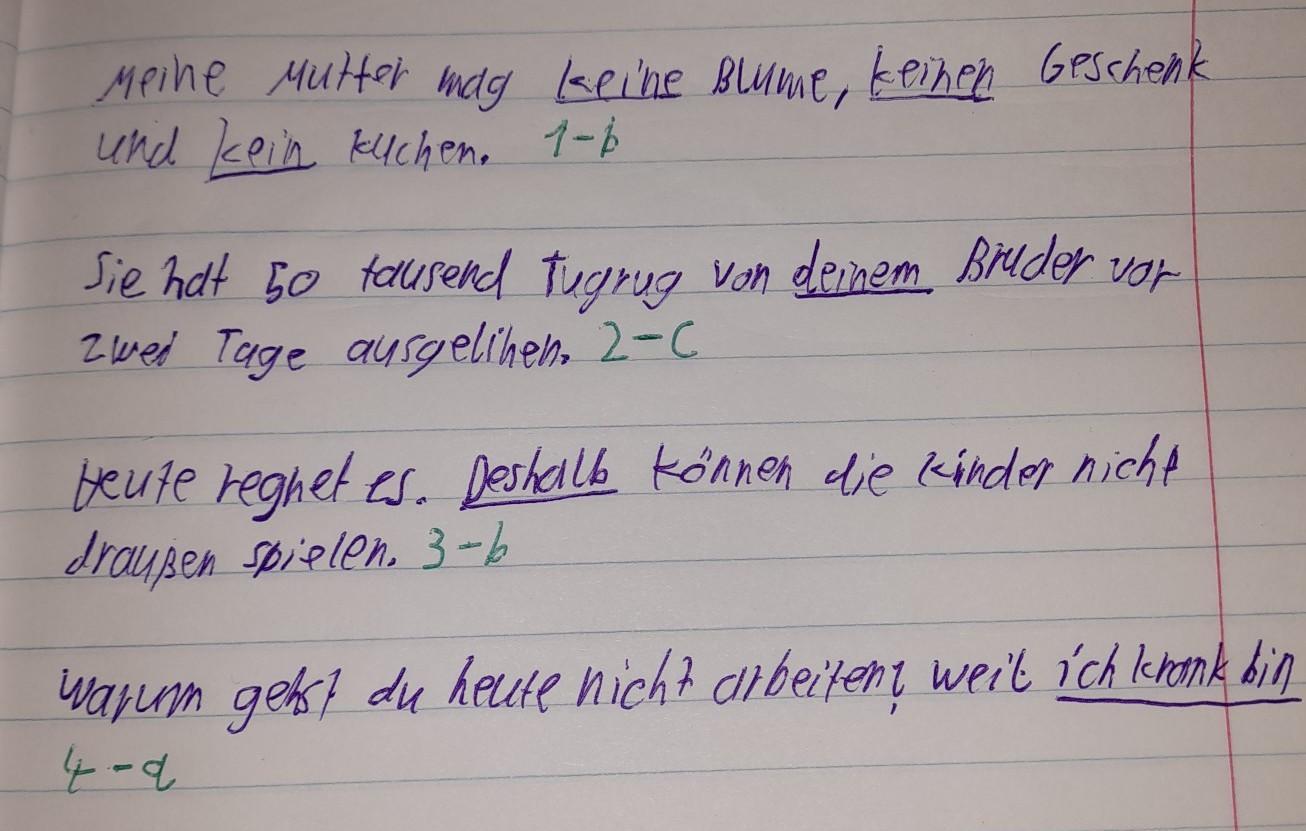 Meine Mutter mag keine Blume, keinen Geschenk
und kein Kuchen. 1-b
Sie hat 50 tausend Tugrug von deinem Bruder vor
zwei Tage ausgelihen. 2-c
Heute regnet es. Deshalb können die Kinder nicht
draußen spielen. 3-b
Warum gehst du heute nicht arbeiten? weil ich krank bin
4-a